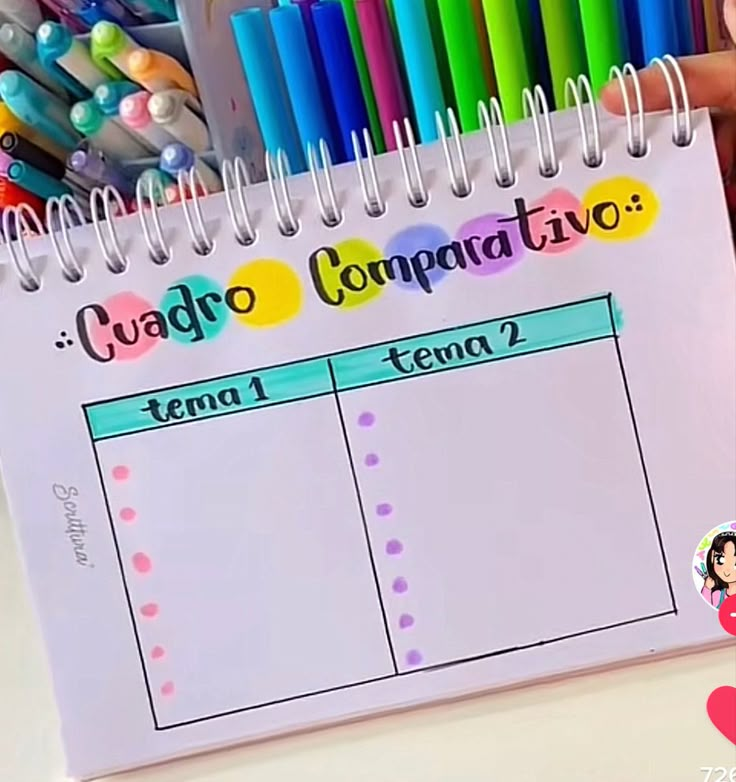 Cuadro Comparativo
tema 1
tema 2
Scrittura